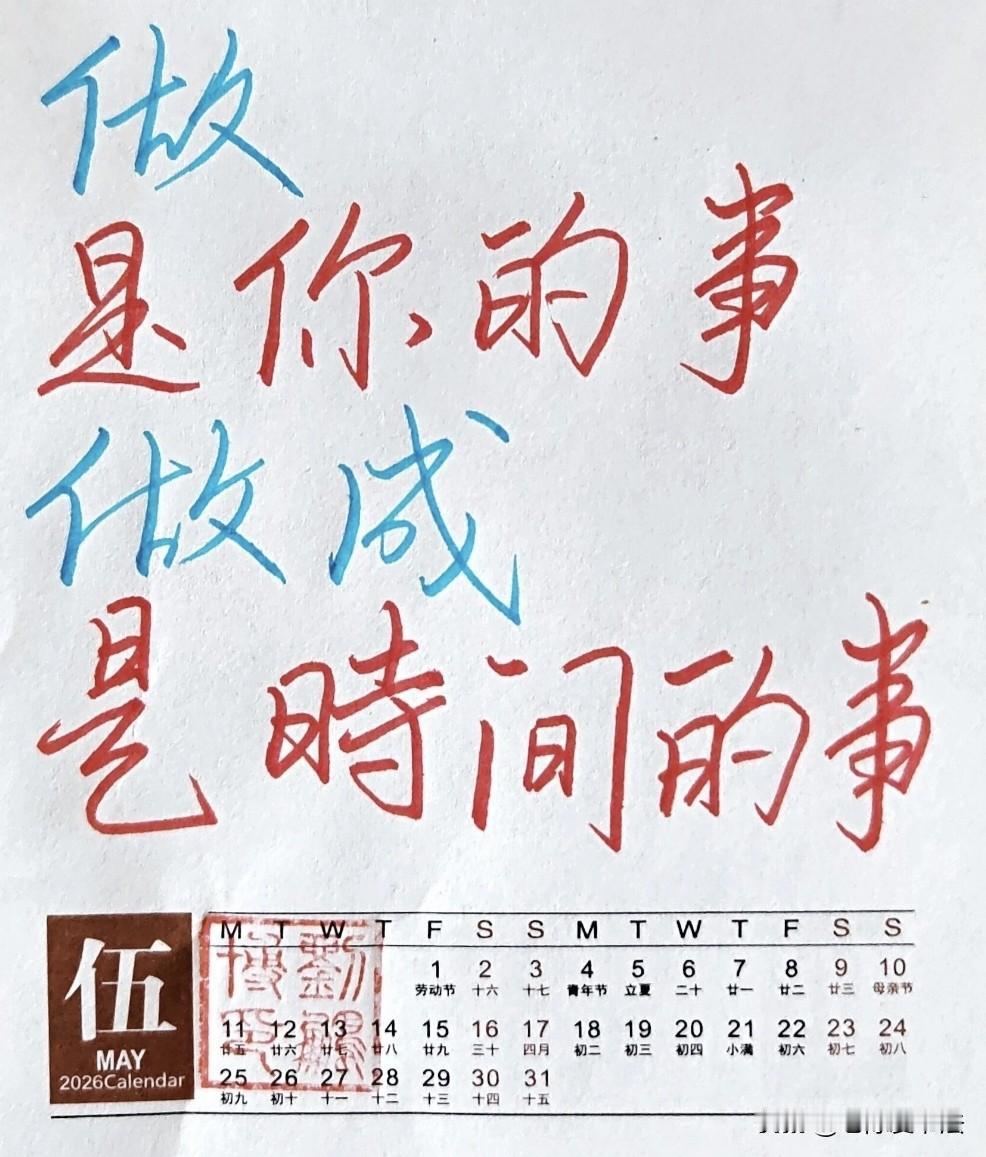 做
是你的事
做成
是時间的事
伍
MAY
2026Calendar
M T W T F S S M T W T F S S
1 2 3 4 5 6 7 8 9 10
劳动节 十六 十七 青年节 立夏 二十 廿一 廿二 廿三 母亲节
11 12 13 14 15 16 17 18 19 20 21 22 23 24
廿五 廿六 廿七 廿八 廿九 三十 四月 初二 初三 初四 小满 初六 初七 初八
25 26 27 28 29 30 31
初九 初十 十一 十二 十三 十四 十五